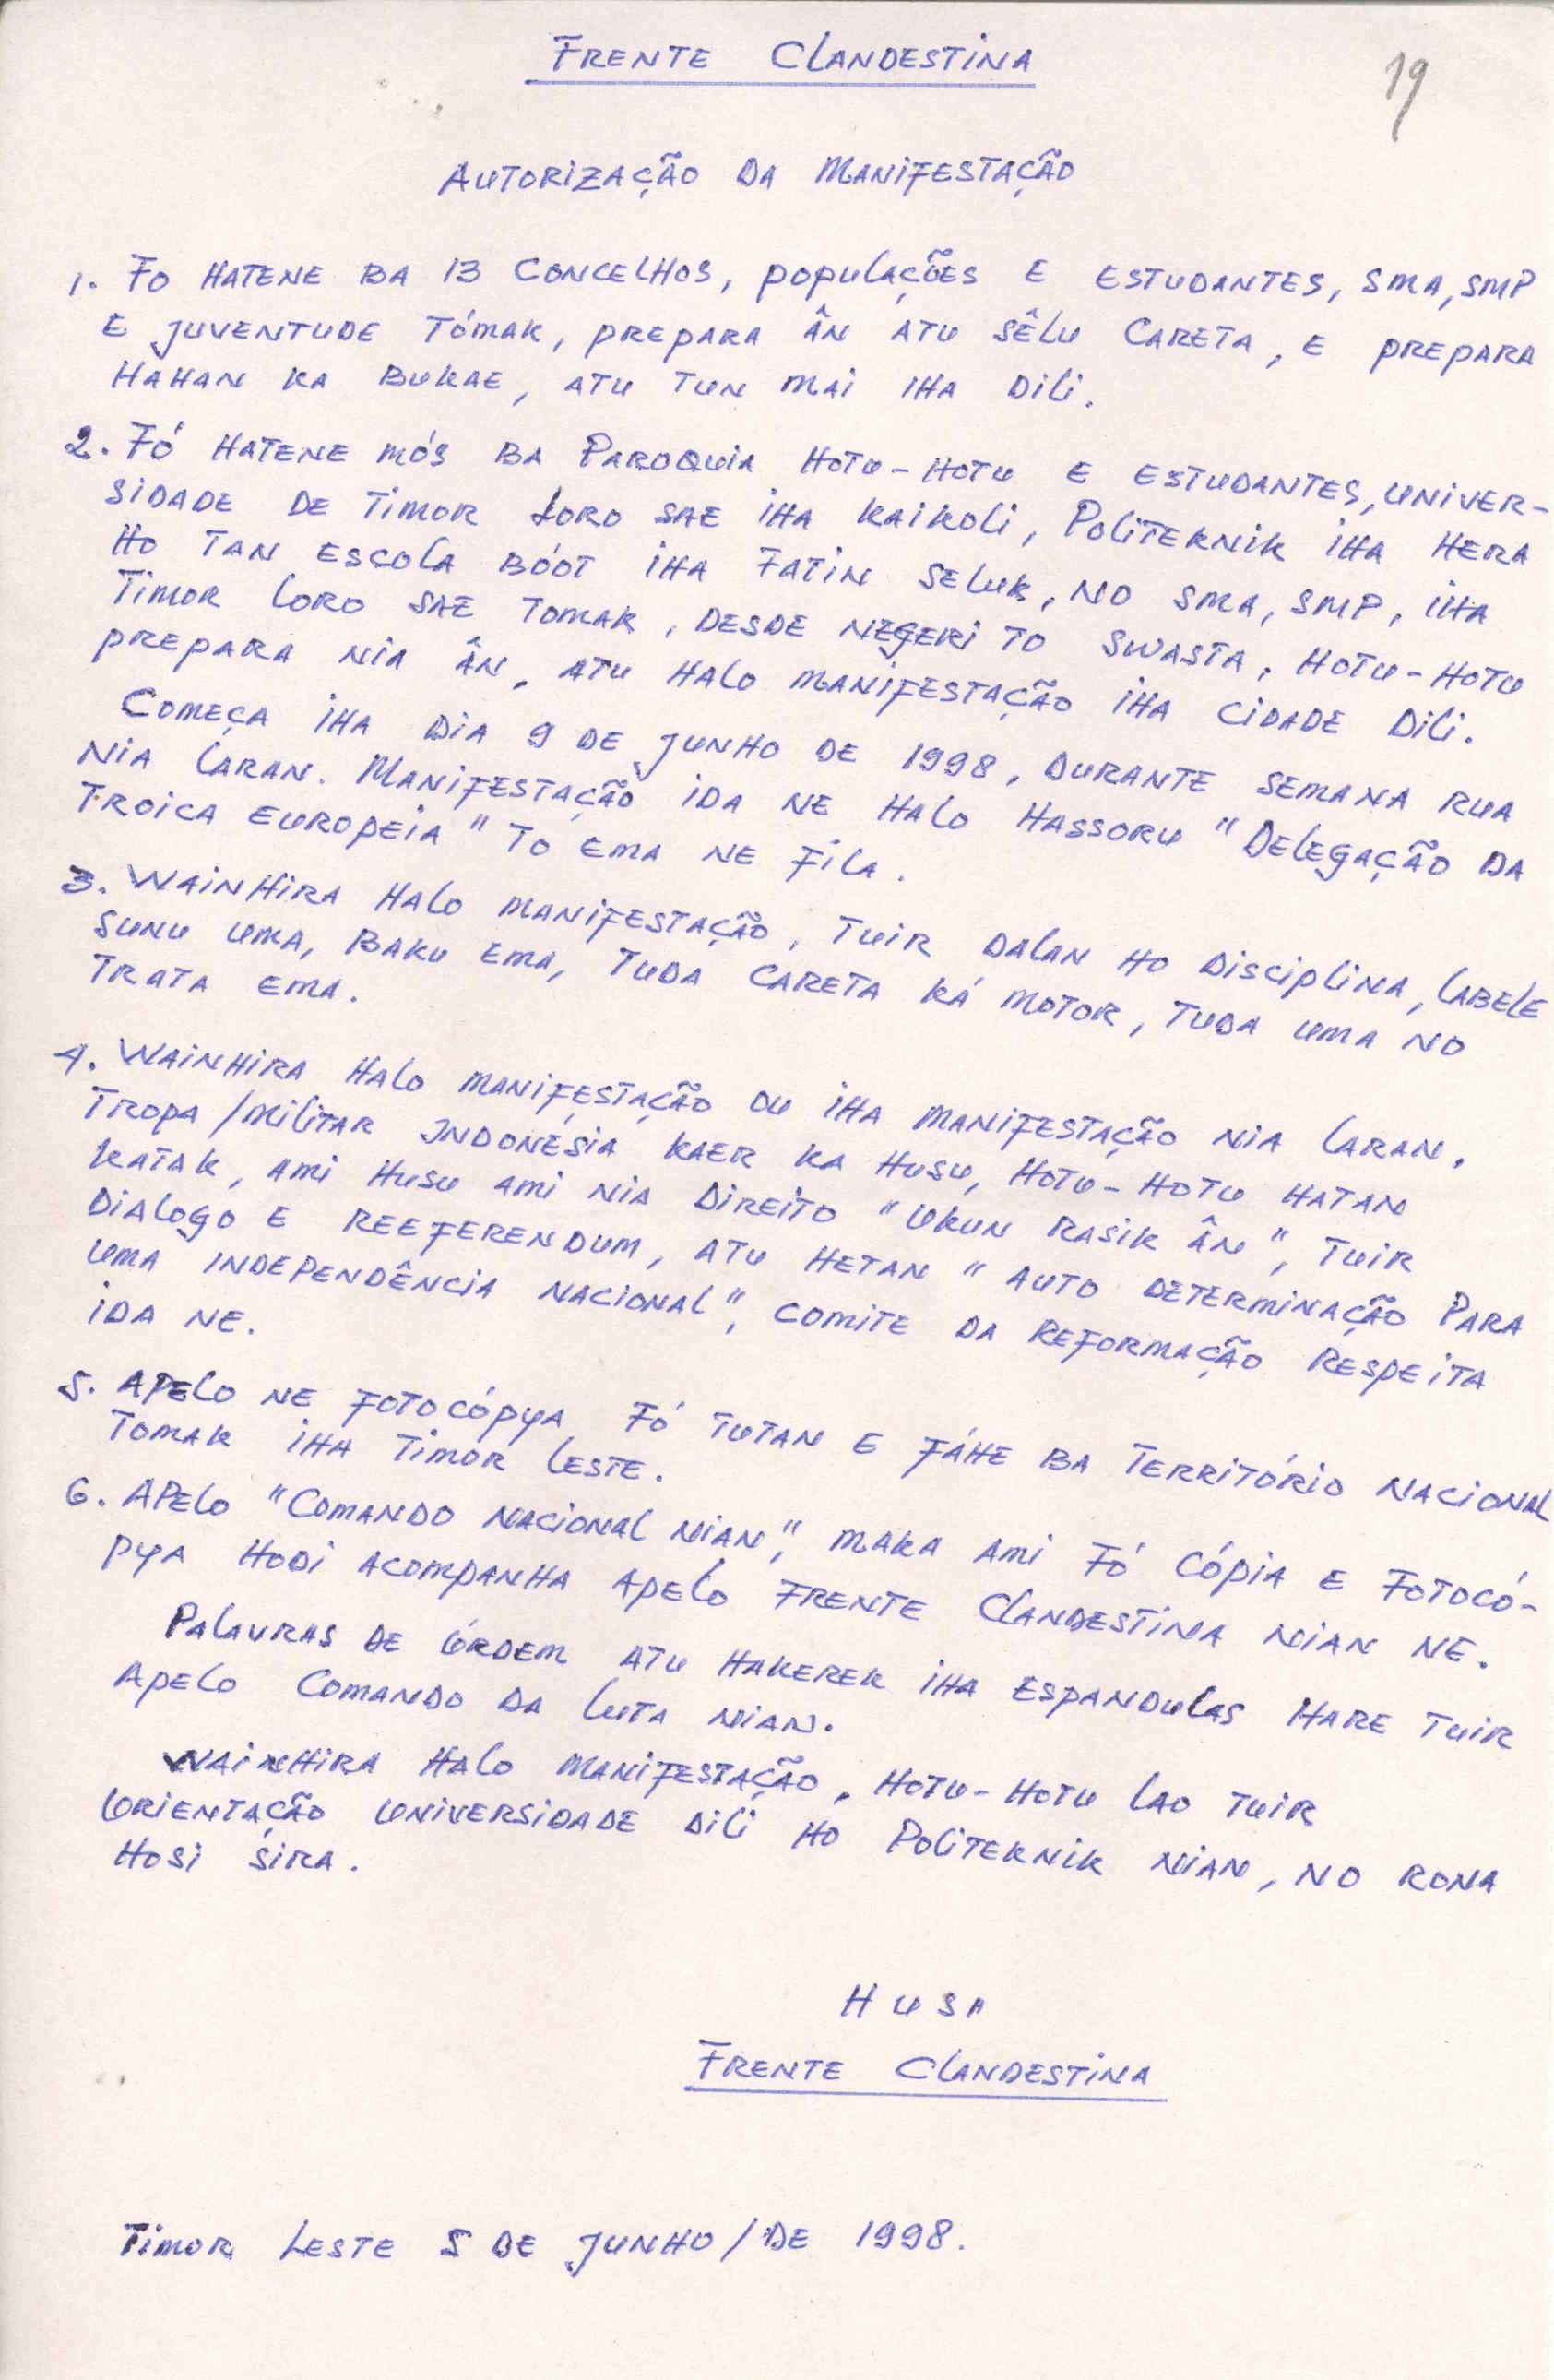 FRENTE CLANDESTINA
19
AUTORIZAÇÃO DA MANIFESTAÇÃO
1. FO HATENE BA 13 CONCELHOS, POPULAÇÕES E ESTUDANTES, SMA, SMP
E JUVENTUDE TÓMAK, PREPARA ÂN ATU SÊLU CARETA, E PREPARA
HAHAN KA BUKAE, ATU TUN MAI IHA DILI.
2. FÓ HATENE MÓS BA PAROQUIA HOTU-HOTU E ESTUDANTES, UNIVER-
SIDADE DE TIMOR LORO SAE IHA KAIKOLI, POLITEKNIK IHA HERA
HO TAN ESCOLA BÓOT IHA FATIN SELUK, NO SMA, SMP, IHA
TIMOR LORO SAE TOMAK, DESDE NEGERI TO SWASTA, HOTU-HOTU
PREPARA NIA ÂN, ATU HALO MANIFESTAÇÃO IHA CIDADE DILI.
COMEÇA IHA DIA 9 DE JUNHO DE 1998, DURANTE SEMANA RUA
NIA LARAN. MANIFESTAÇÃO IDA NE HALO HASSORU "DELEGAÇÃO DA
TROICA EUROPEIA" TO EMA NE FILA.
3. WAINHIRA HALO MANIFESTAÇÃO, TUIR DALAN HO DISCIPLINA, LABELE
SUNU UMA, BAKU EMA, TUDA CARETA KÁ MOTOR, TUDA UMA NO
TRATA EMA.
4. WAINHIRA HALO MANIFESTAÇÃO OU IHA MANIFESTAÇÃO NIA LARAN,
TROPA/MILITAR INDONÉSIA KAER KA HUSU, HOTU-HOTU HATAN
KATAK, AMI HUSU AMI NIA DIREITO "UKUN RASIK ÂN", TUIR
DIALOGO E REEFERENDUM, ATU HETAN "AUTO DETERMINAÇÃO PARA
UMA INDEPENDÊNCIA NACIONAL", COMITE DA REFORMAÇÃO RESPEITA
IDA NE.
5. APELO NE FOTOCÓPYA FÓ TUTAN E FÁHE BA TERRITÓRIO NACIONAL
TOMAK IHA TIMOR LESTE.
6. APELO "COMANDO NACIONAL NIAN", MAKA AMI FÓ CÓPIA E FOTOCÓ-
PYA HODI ACOMPANHA APELO FRENTE CLANDESTINA NIAN NE.
PALAVRAS DE ÓRDEM ATU HAKEREK IHA ESPANDULAS HARE TUIR
APELO COMANDO DA LUTA NIAN.
WAINHIRA HALO MANIFESTAÇÃO, HOTU-HOTU LAO TUIR
ORIENTAÇÃO UNIVERSIDADE DILI HO POLITEKNIK NIAN, NO RONA
HOSI SIRA.
HUSI
FRENTE CLANDESTINA
TIMOR LESTE 5 DE JUNHO/DE 1998.